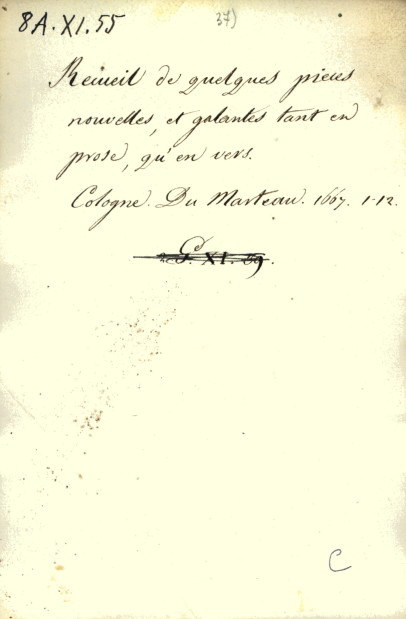 8A·XI·55
37)
Recueil de quelques pieces
nouvelles, et galantes tant en
prose, qu'en vers.
Cologne. Du Marteau. 1667. 1-12.
C